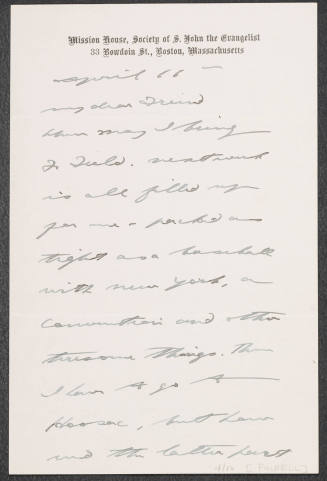 Mission House, Society of S. John the Evangelist
33 Bowdoin St., Boston, Massachusetts
April 16
my dear Friend
How may I bring
Fr Field. next week
is all filled up
for me - packed as
tight as a baseball
with new York, a
Convention and other
tiresome things. Then
I have to go to
Hoosac, but
and the latter part
4/16